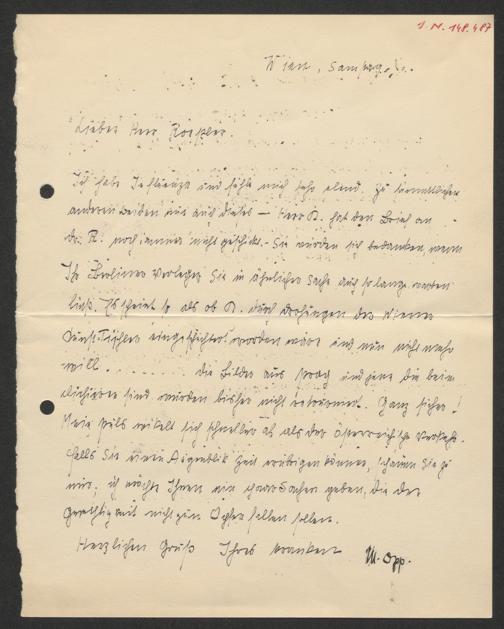 J. N. 148.487
Wien, Samstag
Lieber Herr Roessler.
Ich habe Influenza und fühle mich sehr elend. Zu
anderen Leiden nun auch dieses — Herr R. hat den Brief an
Dr. R. noch immer nicht geschickt. - Sie würden sich bedanken, wenn
Ihr Berliner Verleger Sie in ähnlicher Sache auch so lange warten
ließ. Es scheint so als ob R. durch Drohungen der Wiener
Kunst-Tischler eingeschüchtert worden wäre und nun nicht mehr
will. . . . . . . . . Die Bilder aus Prag und jene die beim
sind wurden bisher nicht retourniert. Ganz sicher!
Mein Puls sich schneller ab als der österreichische Verkehr.
Falls Sie einen Augenblick Zeit erübrigen können, schauen Sie zu
mir, ich möchte Ihnen ein paar Sachen geben, die der
nicht zum Opfer fallen sollen.
Herzlichen Gruß Ihres kranken M. Opp.